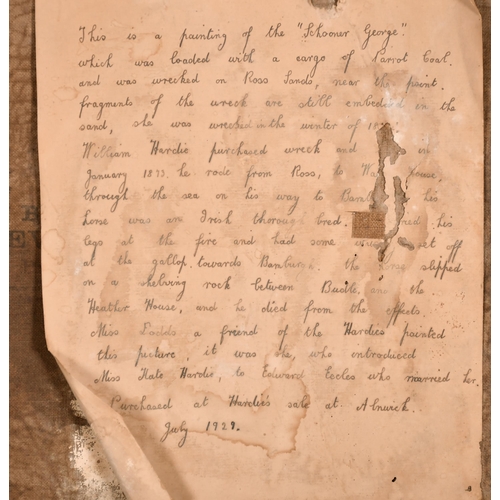 This is a painting of the "Schooner George".
which was loaded with a cargo of Parrot Coal.
and was wrecked on Ross Sands, near the point.
fragments of the wreck are still embedded in the
sand, she was wrecked in the winter of
William Hardie purchased wreck and in
January 1873. he rode from Ross, to house,
through the sea on his way to his
horse was an Irish thorough bred. his
legs at the fire and had some set off
at the gallop. towards Bamburgh. the slipped
on a shelving rock between Budle, and the
Heather House, and he died from the effects.
Miss Dodds a friend of the Hardies painted
this picture, it was she, who introduced
Miss Kate Hardie, to Edward Eccles who married her.
Purchased at Hardie's sale at Alnwick.
July 1929.